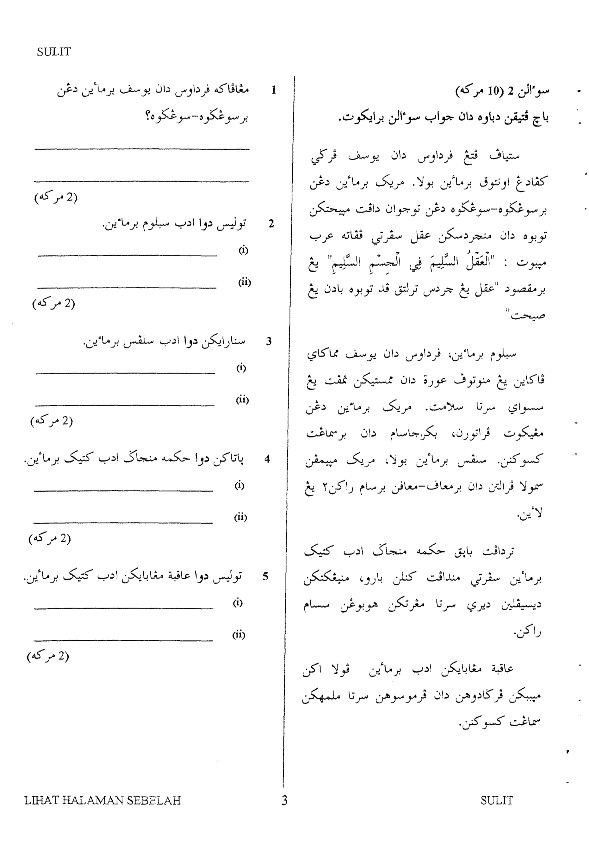 SULIT
سوءالن 2 (10 مركه)
باچ ڤتيقن دباوه دان جواب سوءالن برايكوت.
ستياڤ ڤتڠ فرداوس دان يوسف ڤرڬي
كڤادڠ اونتوق برماءين بولا. مريک برماءين دڠن
برسوڠݢوه-سوڠݢوه دڠن توجوان داڤت مڽيحتكن
توبوه دان منچردسكن عقل سڤرتي ڤڤاته عرب
مڽبوت : "الْعَقْلُ السَّلِيمَ فِي الْجِسْمِ السَّلِيمِ" يڠ
برمقصود "عقل يڠ چردس ترلتق ڤد توبوه بادن يڠ
صيحت"
سبلوم برماءين، فرداوس دان يوسف مماكاي
ڤاكاين يڠ منوتوڤ عورة دان ممستيكن تمڤت يڠ
سسواي سرتا سلامت. مريک برماءين دڠن
مڠيكوت ڤراتورن، بكرجاسام دان برسماڠت
كسوكنن. سلڤس برماءين بولا، مريک مڽيمڤن
سمولا ڤرالتن دان برمعاف-معافن برسام راكن٢ يڠ
لاءين.
تردافت باڽق حكمه منجاڬ ادب كتيک
برماءين سڤرتي منداڤت كنلن بارو، منيڠكتكن
ديسيڤلين ديري سرتا مڠرتكن هوبوڠن سسام
راكن.
عاقبة مڠابايكن ادب برماءين ڤولا اكن
مڽببكن ڤركادوهن دان ڤرموسوهن سرتا ملمهكن
سماڠت كسوكنن.
1 مڠاڤاكه فرداوس دان يوسف برماءين دڠن
برسوڠݢوه-سوڠݢوه؟
(2 مركه)
2 توليس دوا ادب سبلوم برماءين.
(i)
(ii)
(2 مركه)
3 سنارايكن دوا ادب سلڤس برماءين.
(i)
(ii)
(2 مركه)
4 ڽاتاكن دوا حكمه منجاڬ ادب كتيک برماءين.
(i)
(ii)
(2 مركه)
5 توليس دوا عاقبة مڠابايكن ادب كتيک برماءين.
(i)
(ii)
(2 مركه)
LIHAT HALAMAN SEBELAH
3
SULIT